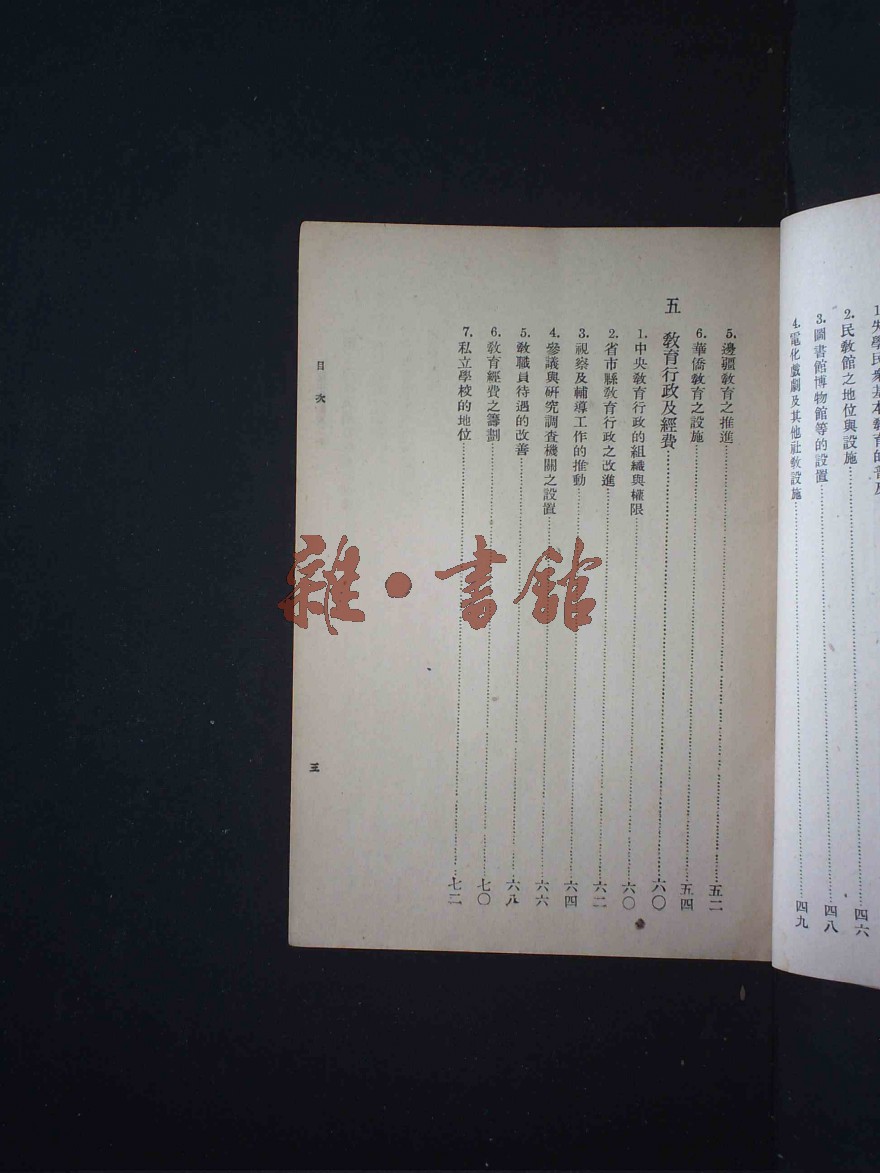 1.失學民衆基本教育的普及
2.民教館之地位與設施……四六
3.圖書館博物館等的設置……四八
4.電化戲劇及其他社教設施……四九
5.邊疆教育之推進……五二
6.華僑教育之設施……五四
五 教育行政及經費……六〇
1.中央教育行政的組織與權限……六〇
2.省市縣教育行政之改進……六二
3.視察及輔導工作的推動……六四
4.參議與研究調查機關之設置……六六
5.教職員待遇的改善……六八
6.教育經費之籌劃……七〇
7.私立學校的地位……七二
目次
三
雜·書館